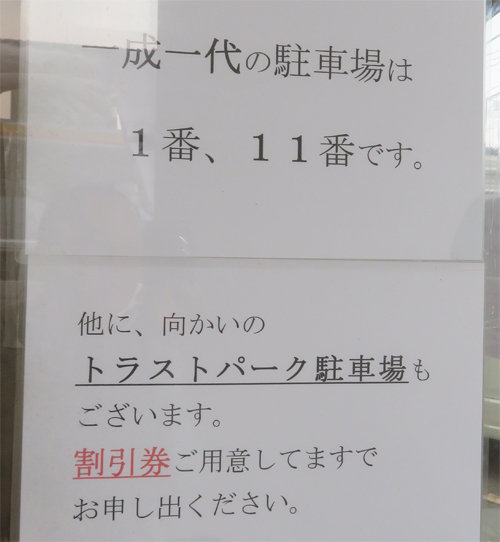 一成一代の駐車場は
１番、１１番です。
他に、向かいの
トラストパーク駐車場も
ございます。
割引券ご用意してますで
お申し出ください。